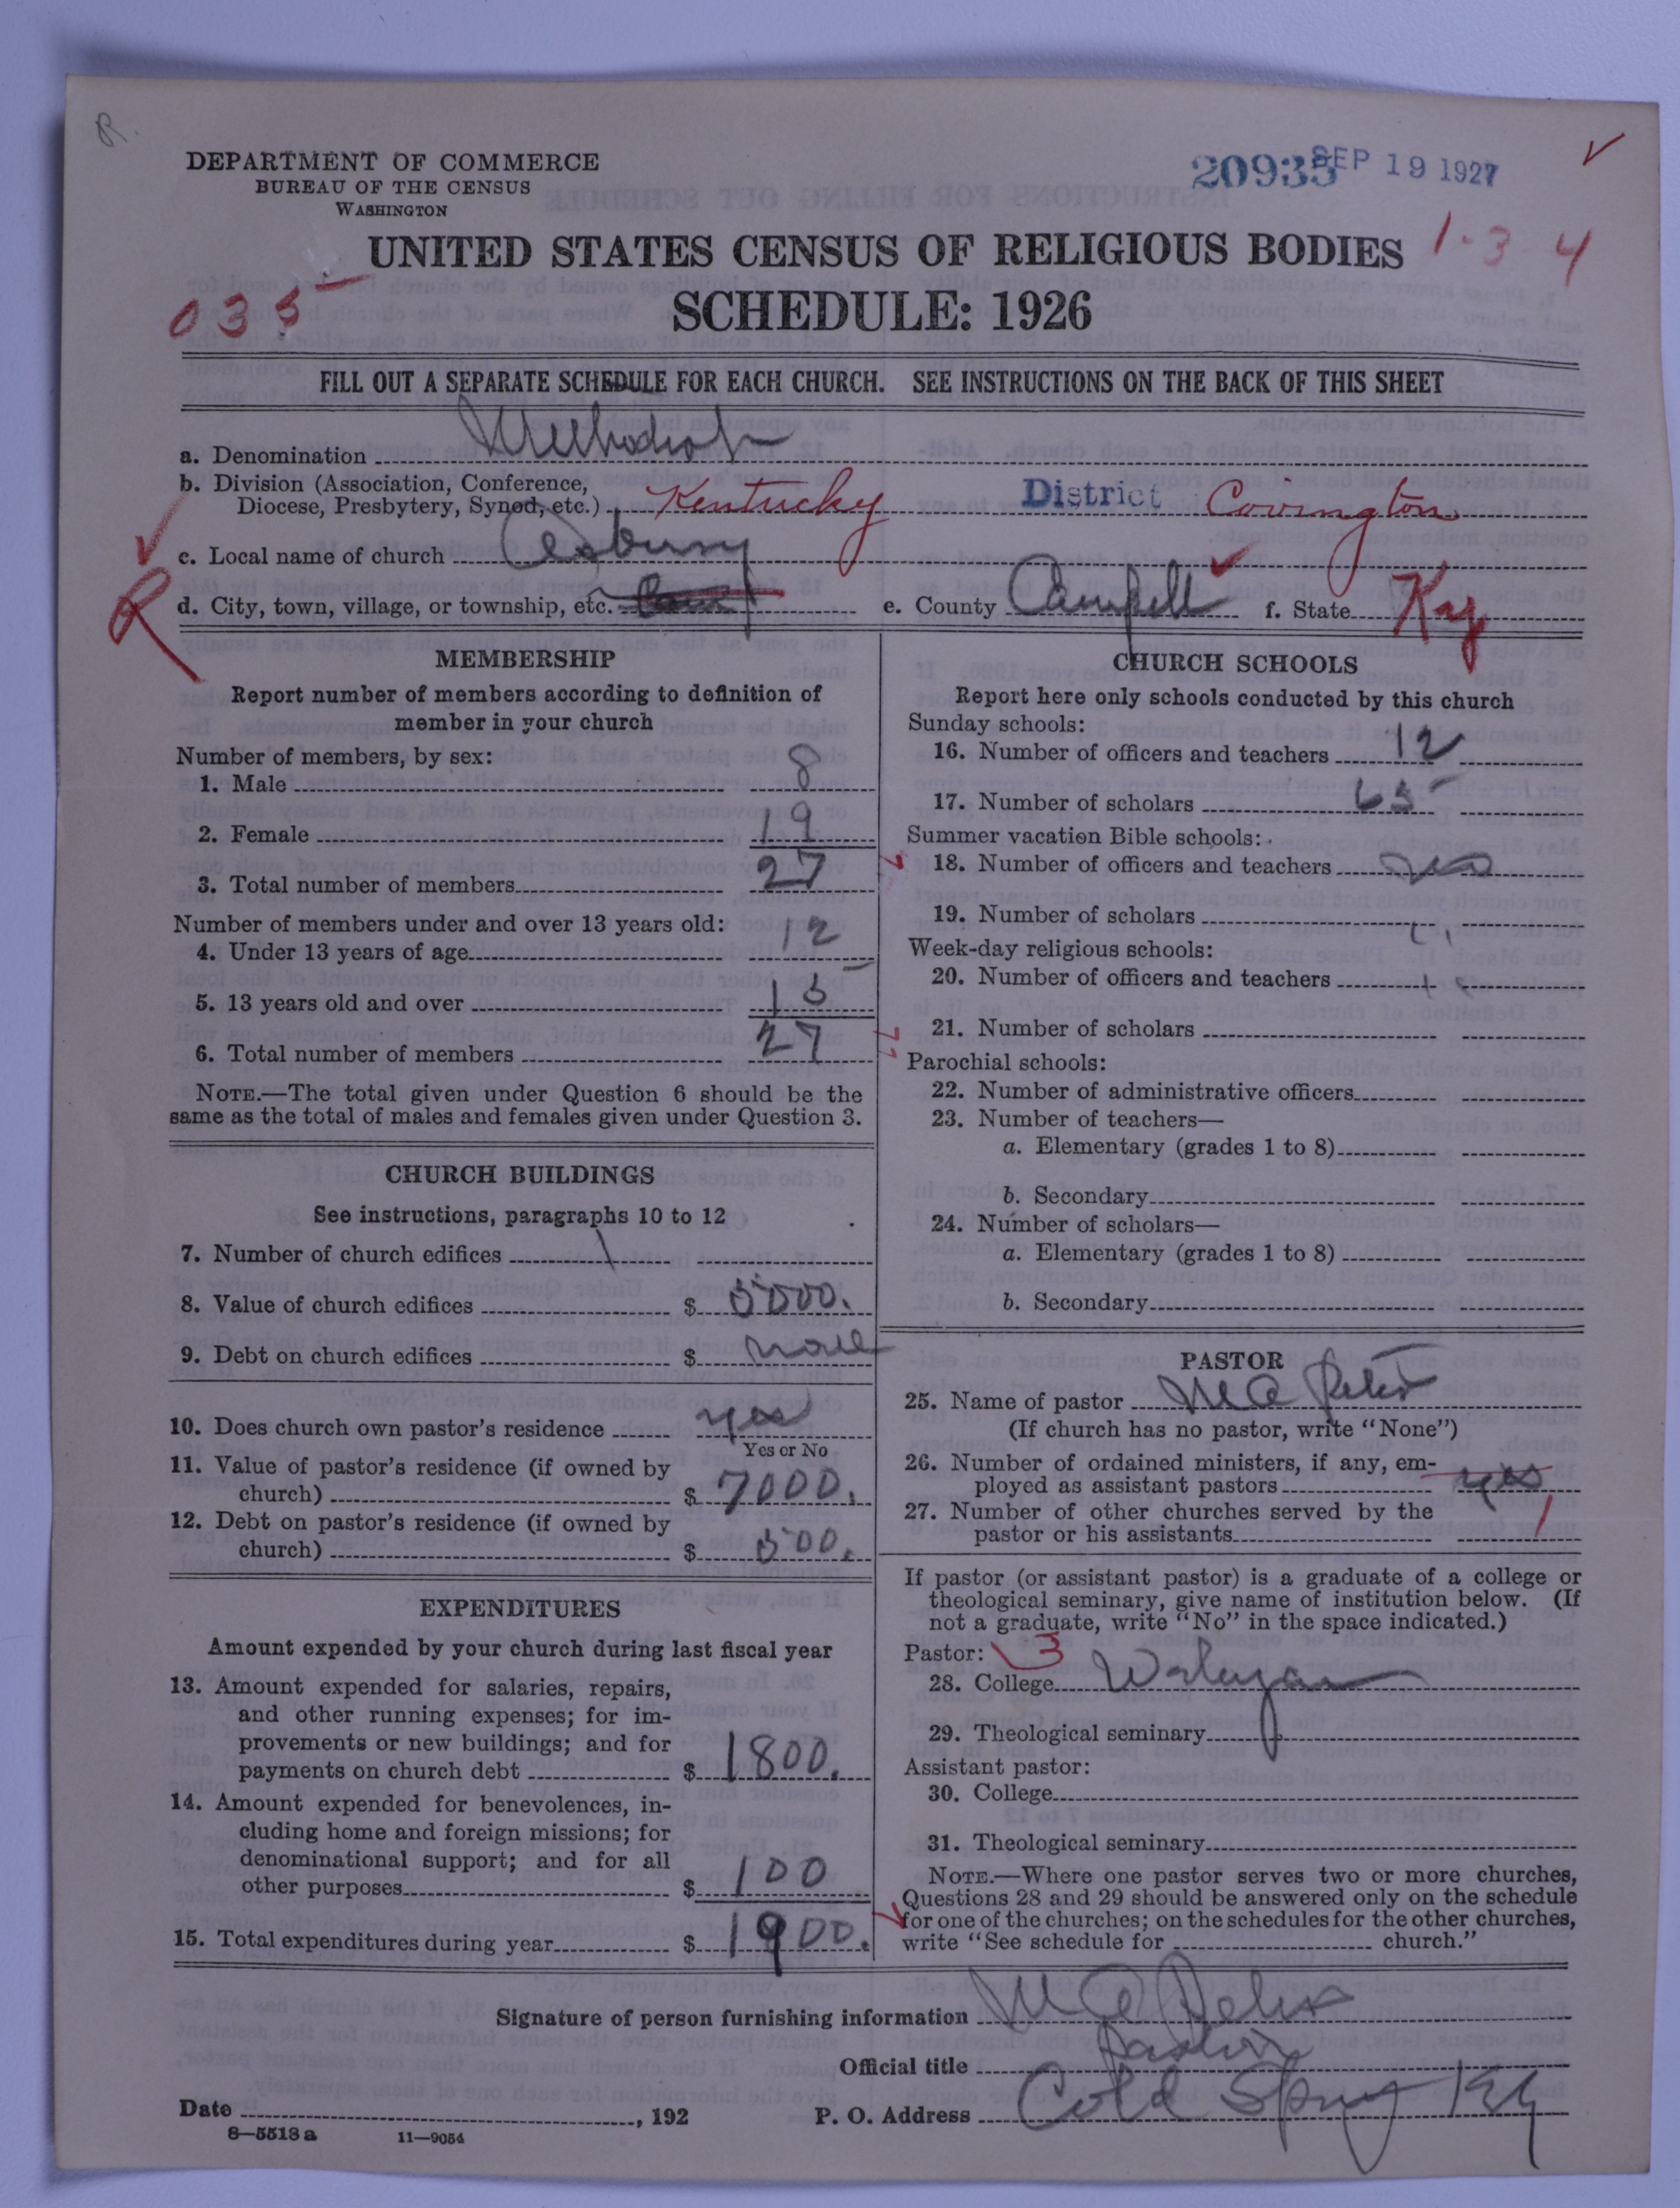 R.
DEPARTMENT OF COMMERCE
BUREAU OF THE CENSUS
WASHINGTON
20935 SEP 19 1927
UNITED STATES CENSUS OF RELIGIOUS BODIES 1-3 4
035 SCHEDULE: 1926
FILL OUT A SEPARATE SCHEDULE FOR EACH CHURCH. SEE INSTRUCTIONS ON THE BACK OF THIS SHEET
a. Denomination Methodist
b. Division (Association, Conference,
Diocese, Presbytery, Synod, etc.) Kentucky District Covington
c. Local name of church Asbury
R d. City, town, village, or township, etc. e. County Campbell f. State Ky
MEMBERSHIP
Report number of members according to definition of
member in your church
Number of members, by sex:
1. Male 8
2. Female 19
3. Total number of members 27
Number of members under and over 13 years old:
4. Under 13 years of age 12
5. 13 years old and over 15
6. Total number of members 27
NOTE.—The total given under Question 6 should be the
same as the total of males and females given under Question 3.
CHURCH BUILDINGS
See instructions, paragraphs 10 to 12
7. Number of church edifices 1
8. Value of church edifices $ 5000.
9. Debt on church edifices $ none
10. Does church own pastor's residence yes
Yes or No
11. Value of pastor's residence (if owned by
church) $ 7000.
12. Debt on pastor's residence (if owned by
church) $ 500.
EXPENDITURES
Amount expended by your church during last fiscal year
13. Amount expended for salaries, repairs,
and other running expenses; for im-
provements or new buildings; and for
payments on church debt $ 1800.
14. Amount expended for benevolences, in-
cluding home and foreign missions; for
denominational support; and for all
other purposes $ 100
15. Total expenditures during year $ 1900.
CHURCH SCHOOLS
Report here only schools conducted by this church
Sunday schools:
16. Number of officers and teachers 12
17. Number of scholars 65
Summer vacation Bible schools:
18. Number of officers and teachers
19. Number of scholars
Week-day religious schools:
20. Number of officers and teachers
21. Number of scholars
Parochial schools:
22. Number of administrative officers
23. Number of teachers—
a. Elementary (grades 1 to 8)
b. Secondary
24. Number of scholars—
a. Elementary (grades 1 to 8)
b. Secondary
PASTOR
25. Name of pastor
(If church has no pastor, write "None")
26. Number of ordained ministers, if any, em-
ployed as assistant pastors yes
27. Number of other churches served by the
pastor or his assistants 1
If pastor (or assistant pastor) is a graduate of a college or
theological seminary, give name of institution below. (If
not a graduate, write "No" in the space indicated.)
Pastor: 3
28. College Wesleyan
29. Theological seminary
Assistant pastor:
30. College
31. Theological seminary
NOTE.—Where one pastor serves two or more churches,
Questions 28 and 29 should be answered only on the schedule
for one of the churches; on the schedules for the other churches,
write "See schedule for church."
Signature of person furnishing information
Official title Pastor
Date , 192 P. O. Address Cold Spring Ky
8—5518a 11—9054